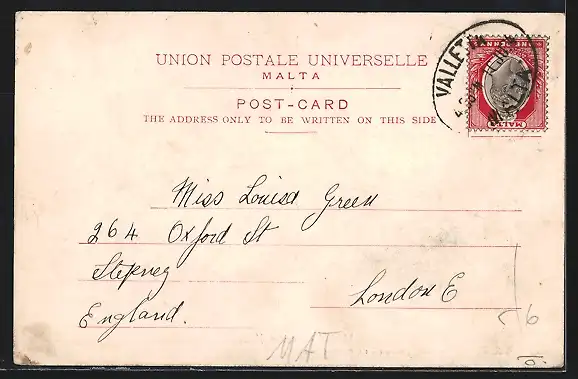 UNION POSTALE UNIVERSELLE
MALTA
POST-CARD
THE ADDRESS ONLY TO BE WRITTEN ON THIS SIDE
VALLETTA
MALTA
ONE PENNY
MALTA
Miss Louisa Green
264 Oxford St
Stepney
London E
England.
MAT
6